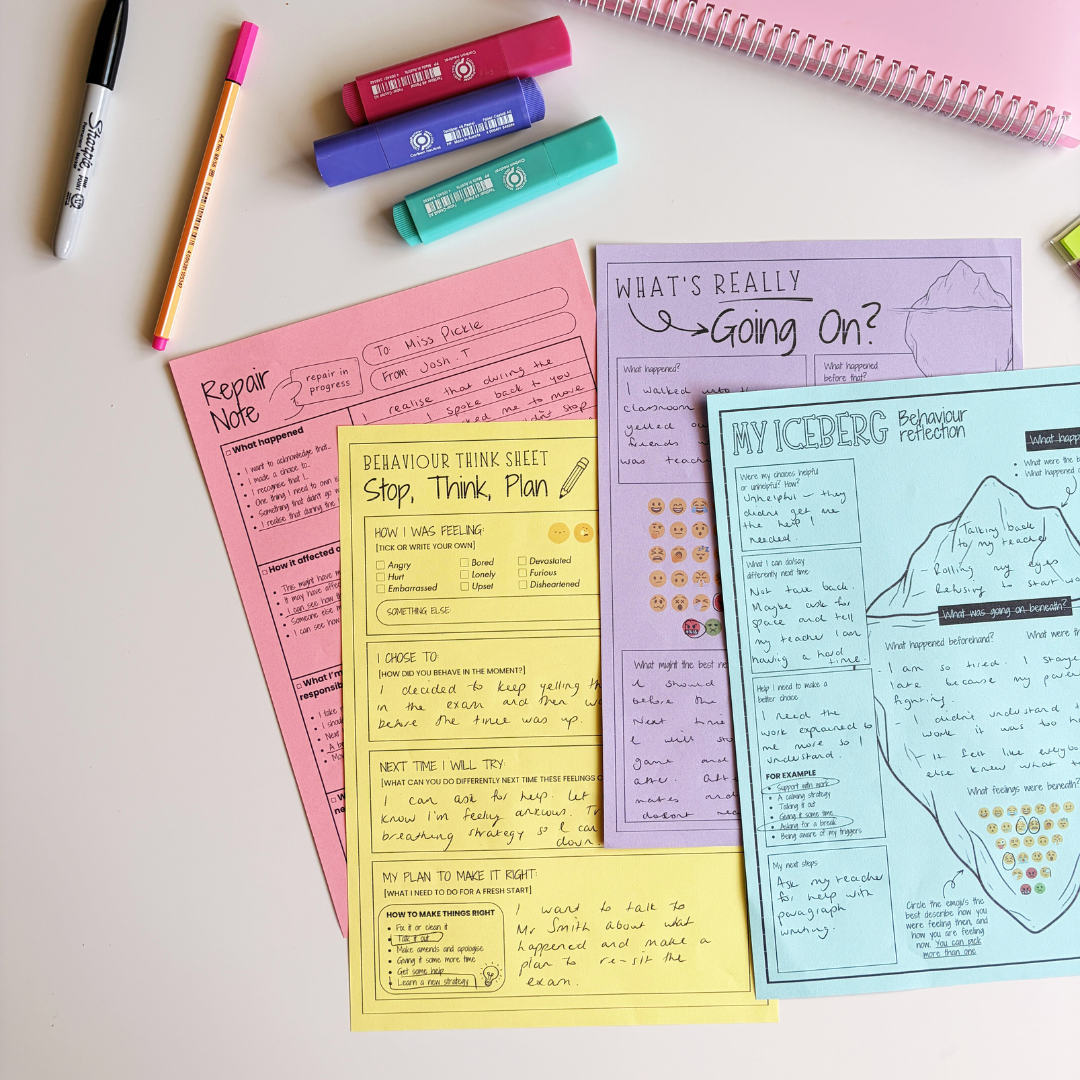 Sharpie
FINE
POINT
Permanent Marker
Carbon neutral
Made in Austria
Carbon neutral
Made in Austria
Carbon neutral
Made in Austria
Repair
Note
repair in
progress
To: Miss Pickle
From: Josh . T
I realise that during the
I spoke back to you
me to move
didn't stop
What happened
I want to acknowledge that...
I made a choice to...
I recognise that I...
One thing I need to own is
Something that didn't go w
I realise that during the
How it affected o
This might have m
It may have affe
I can see how th
Someone else m
I can see how
What I'm
responsib
I take
I shou
Next
A b
WHAT'S REALLY
Going On?
What happened?
I walked into th
classroom
yelled ou
friends w
was teach
What happened
before that?
What might the best ne
I should
before the
Next time
I will sto
game and
after. Aft
mates and
doesn't mea
BEHAVIOUR THINK SHEET
Stop, Think, Plan
HOW I WAS FEELING:
[TICK OR WRITE YOUR OWN]
Angry
Hurt
Embarrassed
Bored
Lonely
Upset
Devastated
Furious
Disheartened
SOMETHING ELSE:
I CHOSE TO:
[HOW DID YOU BEHAVE IN THE MOMENT?]
I decided to keep yelling th
in the exam and then wa
before the time was up.
NEXT TIME I WILL TRY:
[WHAT CAN YOU DO DIFFERENTLY NEXT TIME THESE FEELINGS C
I can ask for help. Let
know I'm feeling anxious. Tr
breathing strategy so I can
down.
MY PLAN TO MAKE IT RIGHT:
[WHAT I NEED TO DO FOR A FRESH START]
HOW TO MAKE THINGS RIGHT
Fix it or clean it
Talk it out
Make amends and apologise
Giving it some more time
Get some help
Learn a new strategy
I want to talk to
Mr Smith about what
happened and make a
plan to re-sit the
exam.
MY ICEBERG
Behaviour
reflection
Were my choices helpful
or unhelpful? How?
Unhelpful - they
didn't get me
the help I
needed.
What I can do/say
differently next time
Not talk back.
Maybe ask for
space and tell
my teacher I am
having a hard time.
Help I need to make a
better choice
I need the
work explained to
me more so I
understand.
FOR EXAMPLE
Support with work
A calming strategy
Talking it out
Giving it some time
Asking for a break
Being aware of my triggers
My next steps
Ask my teacher
for help with
paragraph
writing.
What happ
What were the b
What happened
Talking back
to my teacher
- Rolling my eyes
- Refusing to start wo
What was going on beneath?
What happened beforehand?
What were th
- I am so tired. I stayed
late because my paren
fighting.
- I didn't understand t
work it was too ha
- It felt like everybo
else knew what to
What feelings were beneath?
Circle the emojis the
best describe how you
were feeling then, and
how you are feeling
now. You can pick
more than one.